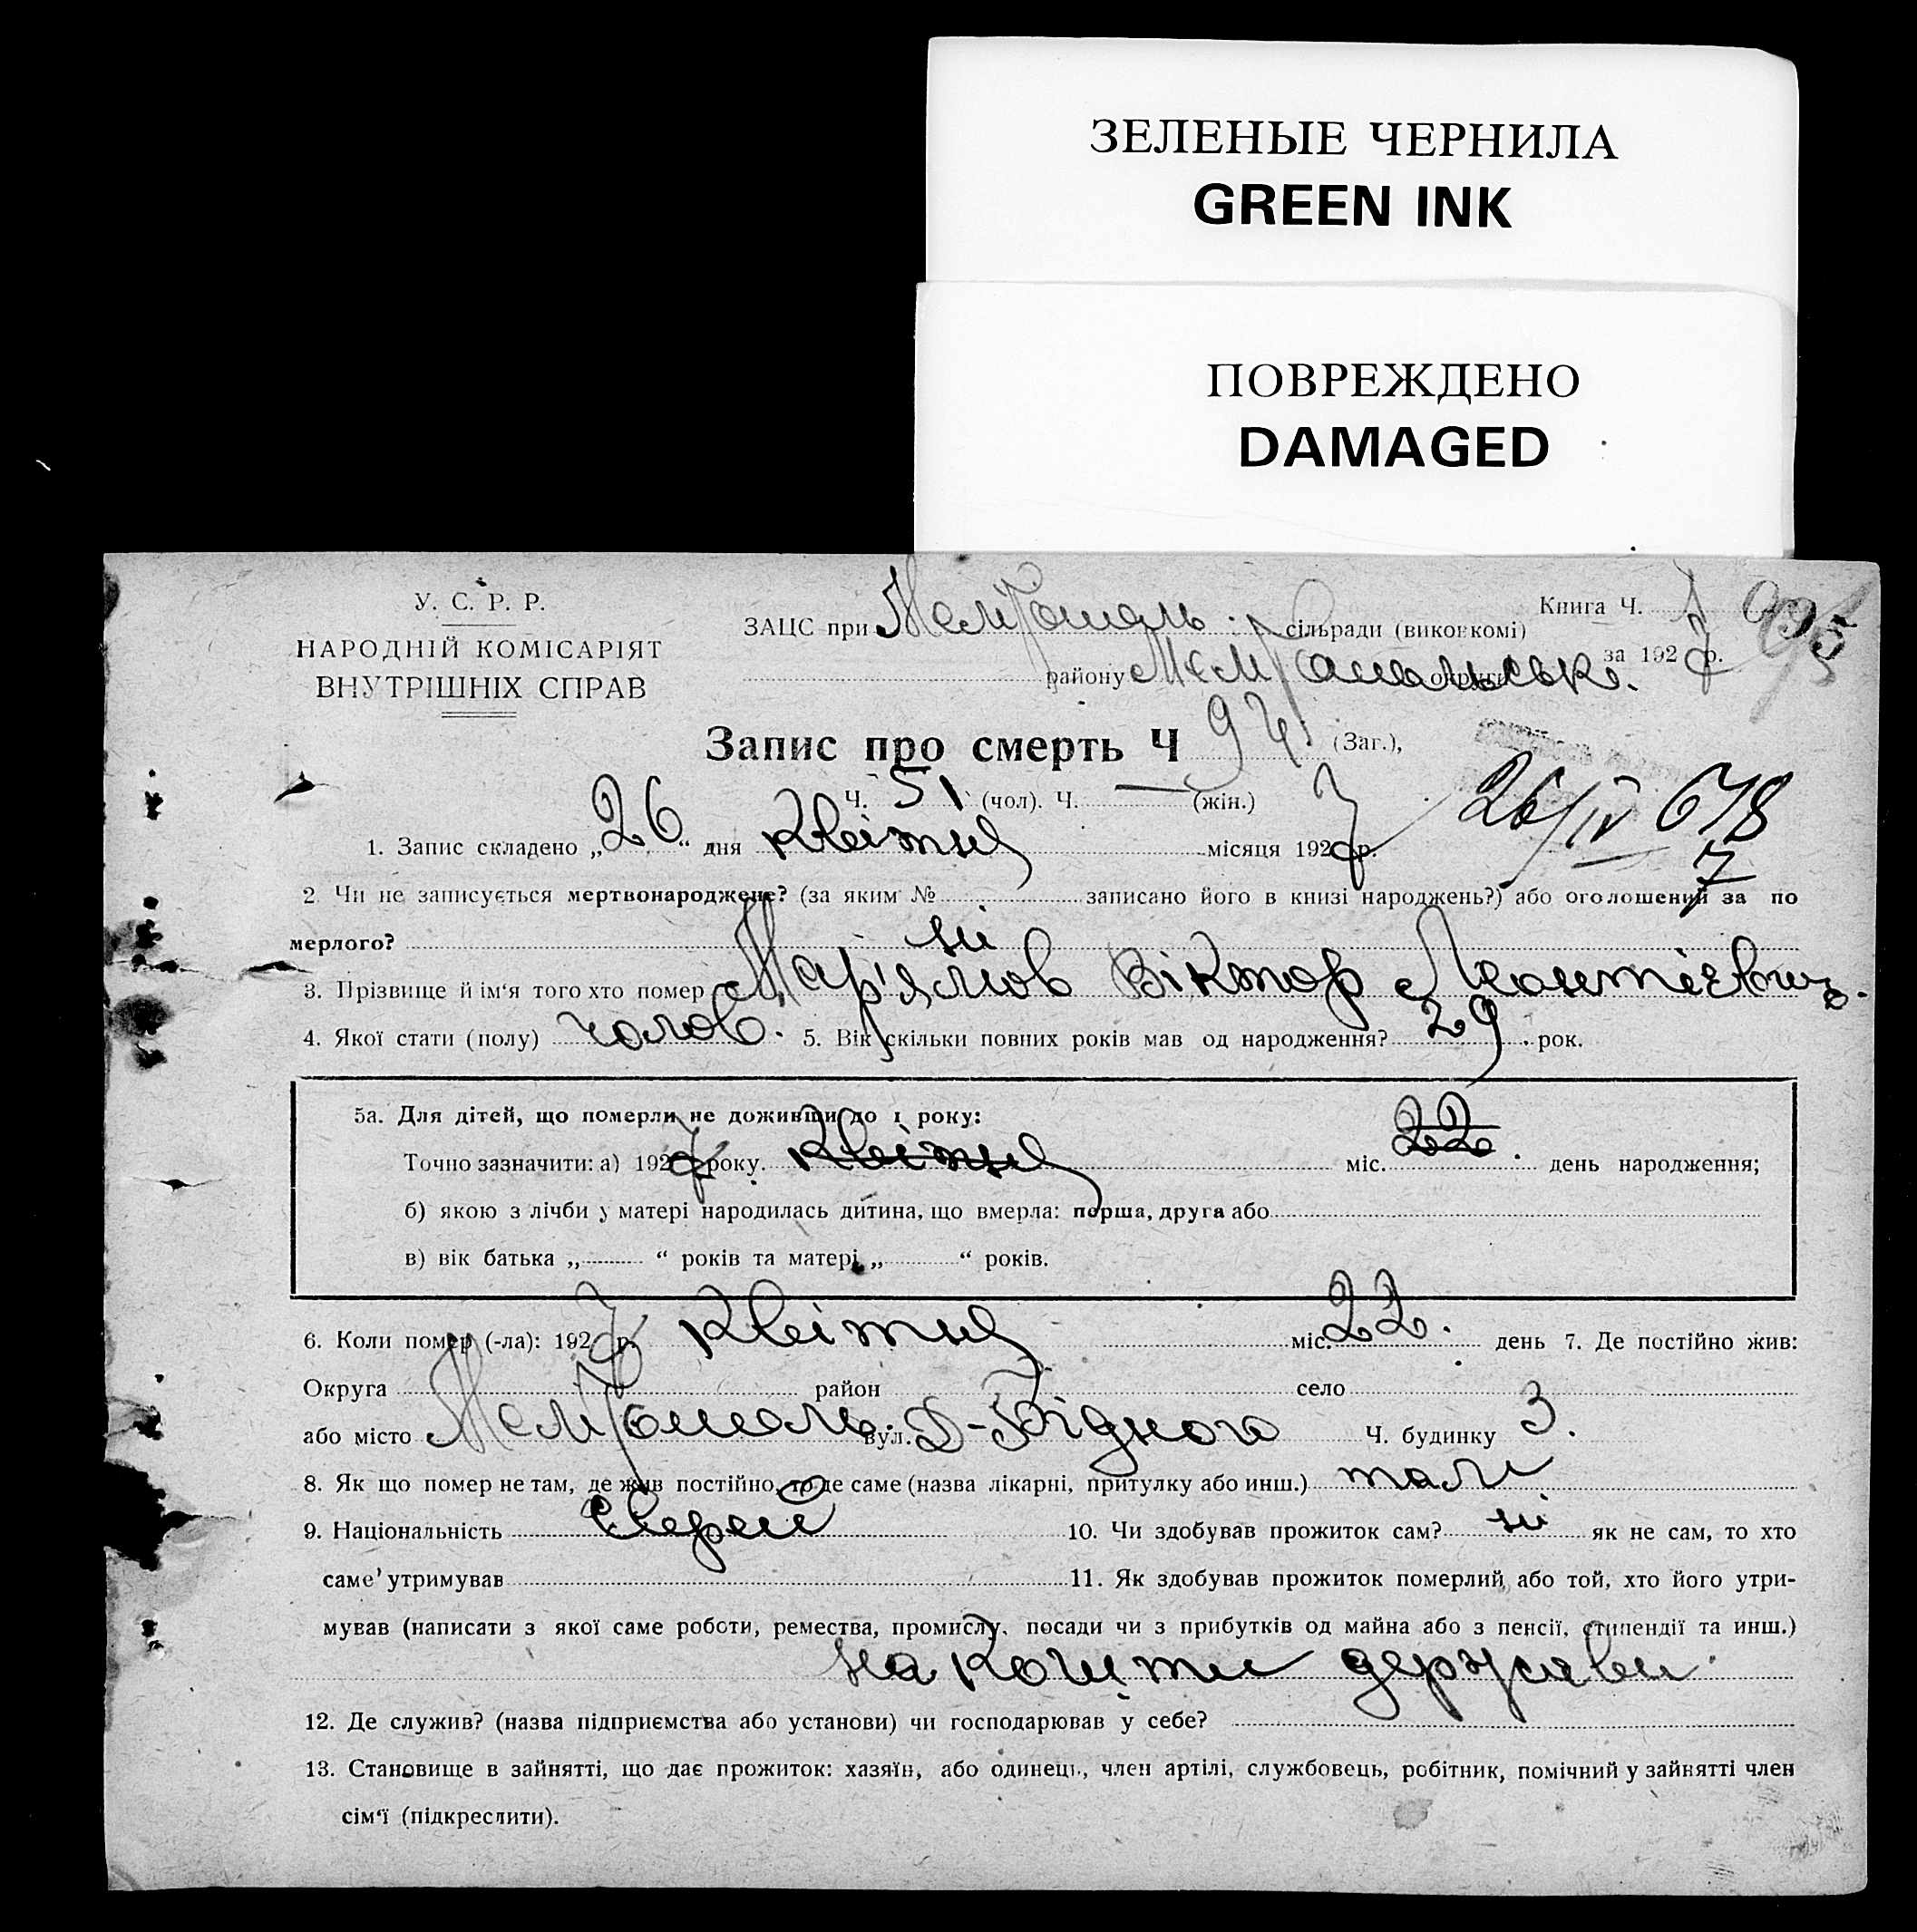 ЗЕЛЕНЫЕ ЧЕРНИЛА
GREEN INK
ПОВРЕЖДЕНО
DAMAGED
У. С. Р. Р.
НАРОДНІЙ КОМІСАРІЯТ
ВНУТРІШНІХ СПРАВ
Книга Ч.
ЗАЦС при Мелітополь. сільради (виконкомі)
за 1927 р.
району Мелітопольськ. округи
Запис про смерть Ч 94 (Заг.),
Ч. 51 (чол). Ч. — (жін.)
26/IV 678
7
1. Запис складено „26“ дня Квітня місяця 1927 р.
2 Чи не записується мертвонароджене? (за яким № записано його в книзі народжень?) або оголошений за по
мерлого? ні
3. Прізвище й ім‘я того хто помер Мар'ямов Віктор Леонтієвич.
4. Якої стати (полу) чолов. 5. Вік скільки повних років мав од народження? 29 . рок.
5а. Для дітей, що померли не доживши до 1 року:
Точно зазначити: а) 1927 року. Квітня міс. 22. день народження;
б) якою з лічби у матері народилась дитина, що вмерла: перша, друга або
в) вік батька „ “ років та матері „ “ років.
6. Коли помер (-ла): 1927 р. Квітня міс. 22. день 7. Де постійно жив:
Округа район село
або місто Мелітополь. вул. Д-Бідного Ч. будинку 3.
8. Як що помер не там, де жив постійно, то де саме (назва лікарні, притулку або инш.) там
9. Національність Єврей 10. Чи здобував прожиток сам? ні як не сам, то хто
саме утримував 11. Як здобував прожиток померлий або той, хто його утри-
мував (написати з якої саме роботи, ремества, промислу, посади чи з прибутків од майна або з пенсії, стипендії та инш.)
на кошти держави.
12. Де служив? (назва підприємства або установи) чи господарював у себе?
13. Становище в зайнятті, що дає прожиток: хазяїн, або одинець, член артілі, службовець, робітник, помічний у зайнятті член
сім‘ї (підкреслити).